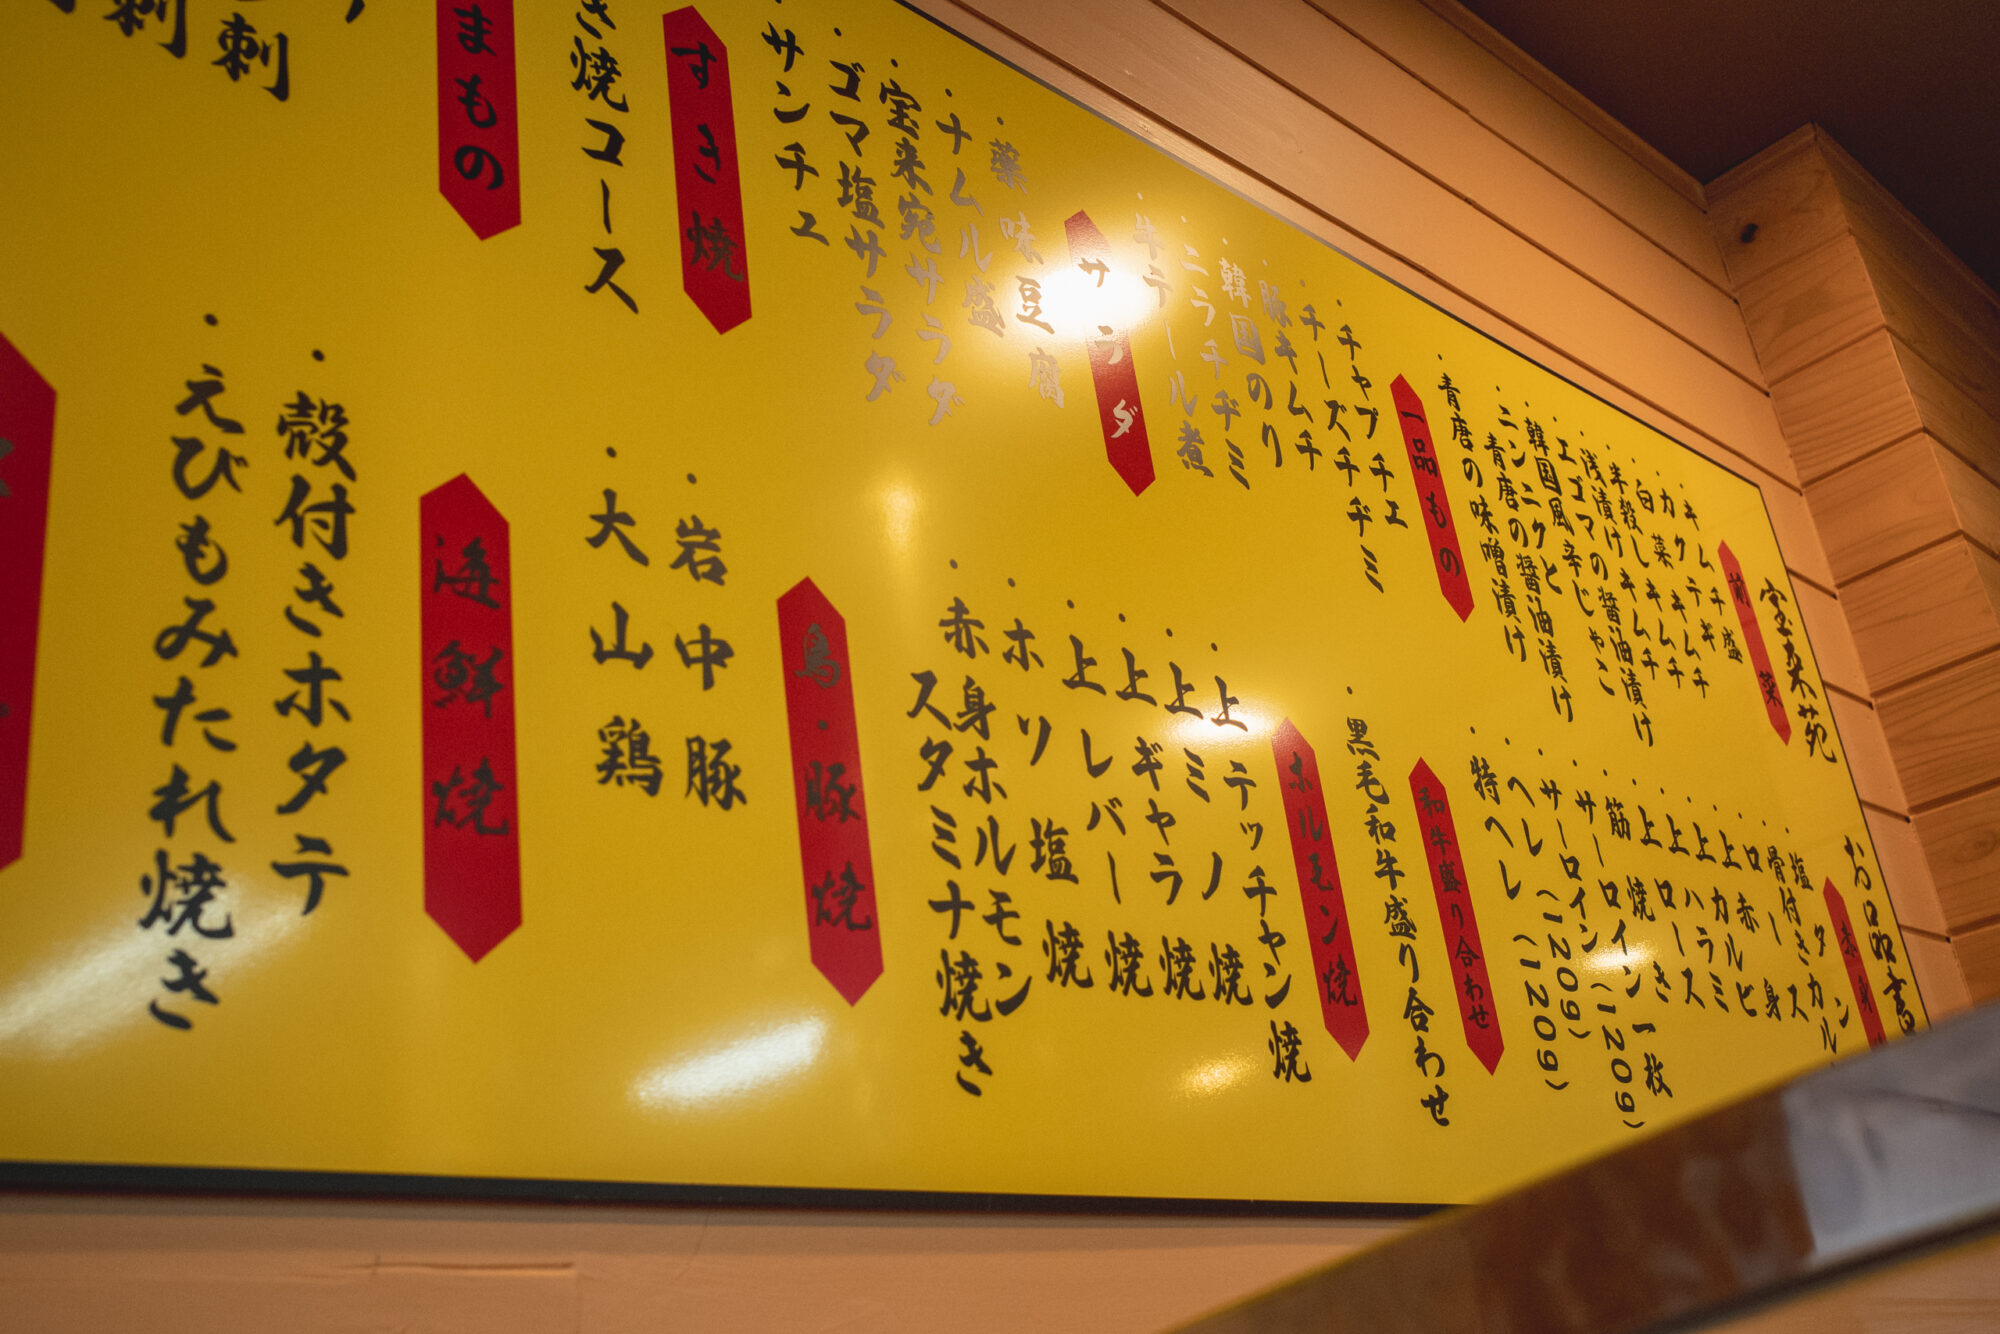 宝来苑
お品書
前菜
キムチ盛
カクテギ
白菜キムチ
半殺しキムチ
浅漬けキムチ
エゴマの醤油漬け
韓国風辛じゃこ
ニンニクと
青唐の醤油漬け
青唐の味噌漬け
一品もの
チャプチェ
チーズチヂミ
豚キムチ
韓国のり
ニラチヂミ
牛テール煮
サラダ
薬味豆腐
ナムル盛
宝来宛サラダ
ゴマ塩サラダ
サンチュ
すき焼
き焼コース
まもの
刺
刺
赤身
塩タン
骨付きカル
ロース
赤身
上カルビ
上ハラミ
上ロース
上焼き
筋
サーロイン一枚
(120g)
サーロイン(120g)
ヘレ(120g)
特ヘレ
和牛盛り合わせ
黒毛和牛盛り合わせ
ホルモン焼
上テッチャン焼
上ミノ焼
上ギャラ焼
上レバー焼
ホソ塩焼
赤身ホルモン
スタミナ焼き
鳥・豚焼
岩中豚
大山鶏
海鮮焼
殻付きホタテ
えびもみたれ焼き